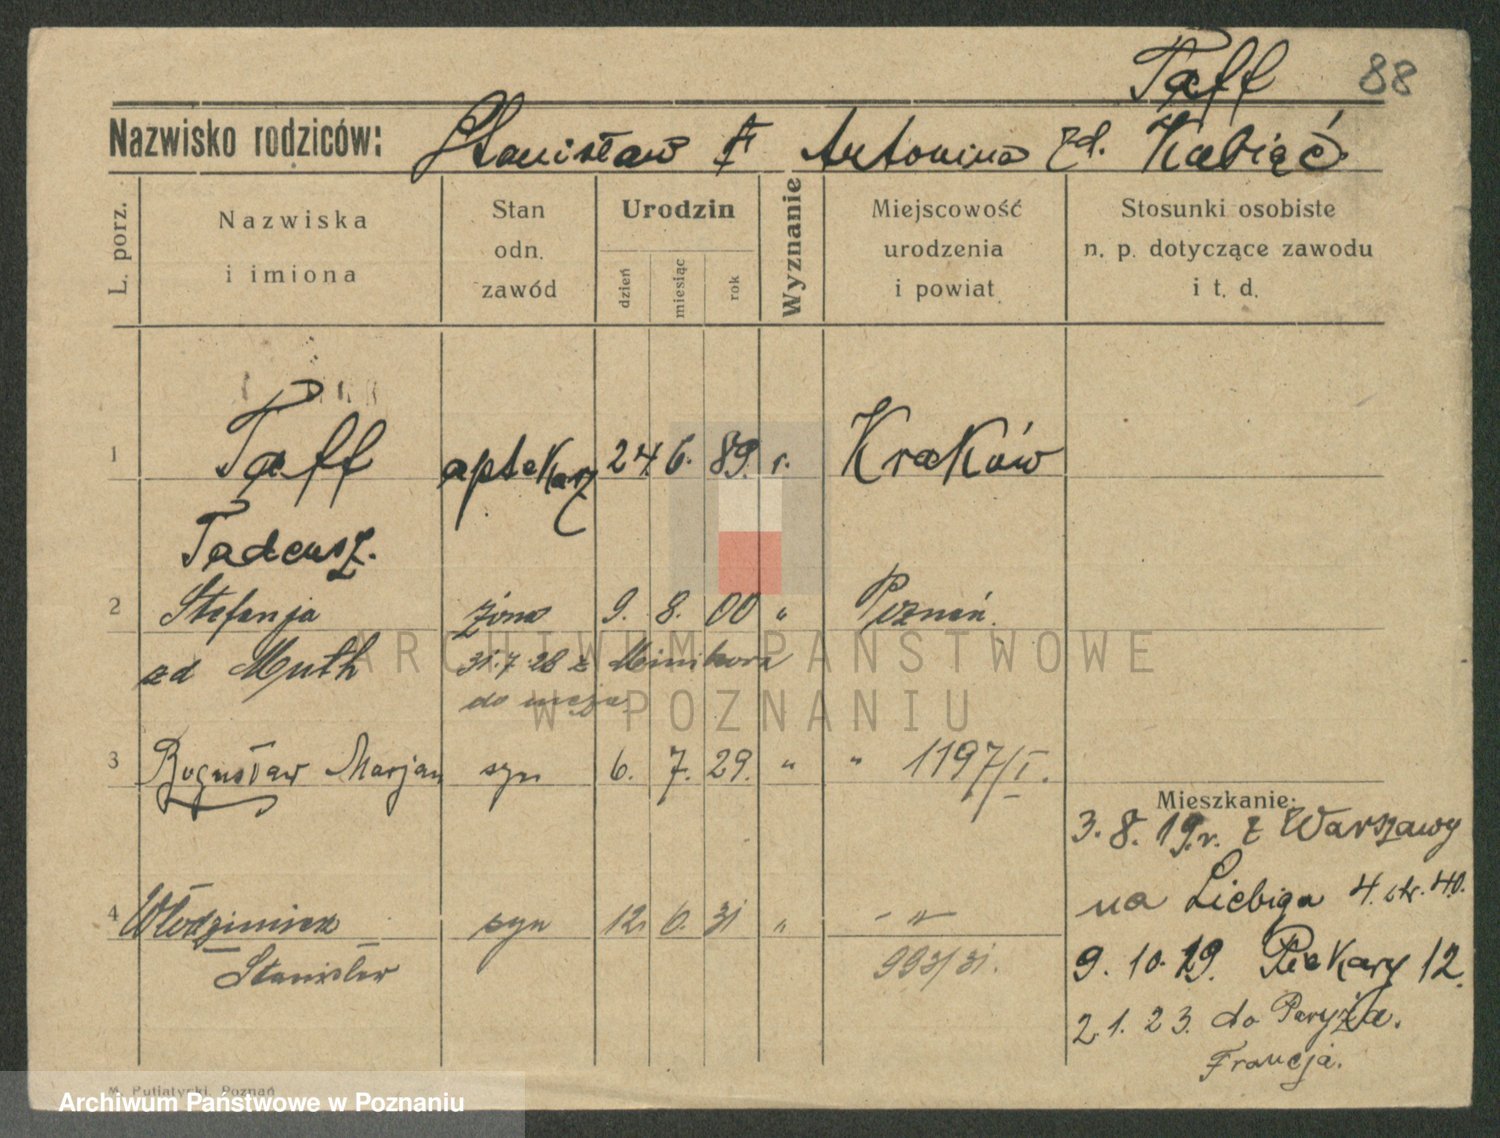 Taff 88
Nazwisko rodziców: Stanisław Antonina zd. Kabiąć
L. porz.
Nazwiska
i imiona
Stan
odn.
zawód
Urodzin
dzień
miesiąc
rok
Wyznanie
Miejscowość
urodzenia
i powiat
Stosunki osobiste
n. p. dotyczące zawodu
i t. d.
1 Taff aptekarz 24. 6. 89. r. Kraków
Tadeusz.
2 Stefanja żona 9. 8. 00 " Poznań.
zd Muth 31.7.28 z Minikora
do męża
3 Bogusław Marjan syn 6. 7. 29. " " 1197/I.
Mieszkanie:
3. 8. 19.r. z Warszawy
na Liebiga 4. str. 40.
4 Włodzimierz syn 12. 6. 31 " - " -
Stanisław 993/31.
9. 10. 19. Piekary 12.
2. 1. 23. do Paryża.
Francja.
M. Putiatycki, Poznań
ARCHIWUM PAŃSTWOWE
W POZNANIU
Archiwum Państwowe w Poznaniu